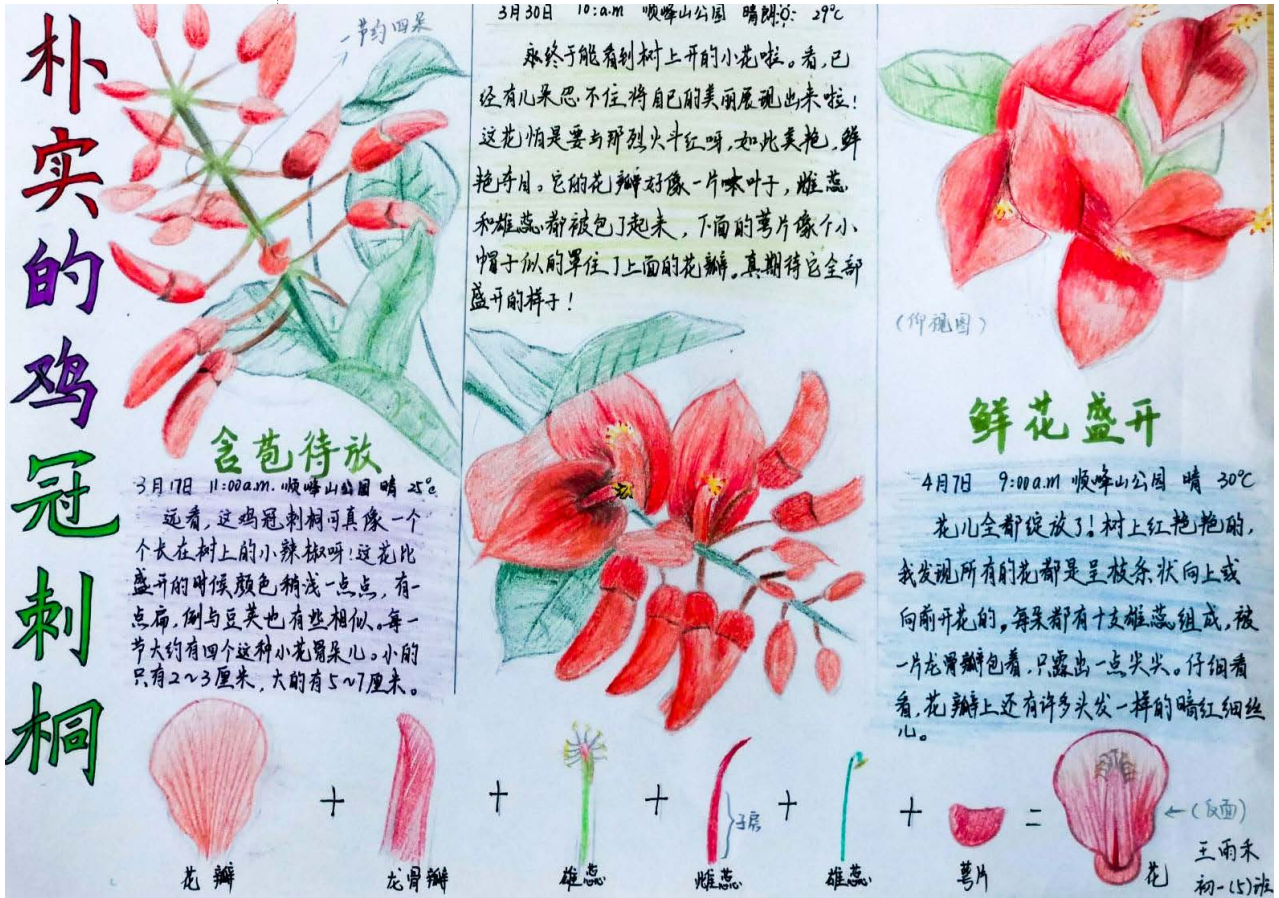 朴实的鸡冠刺桐
一节约四朵
含苞待放
3月17日 11:00a.m. 顺峰山公园 晴 25℃
远看，这鸡冠刺桐可真像一个
个长在树上的小辣椒呀！这花比
盛开的时候颜色稍浅一点点，有一
点扁，倒与豆荚也有些相似。每一
节大约有四个这种小花骨朵儿。小的
只有2~3厘米，大的有5~7厘米。
3月30日 10:a.m 顺峰山公园 晴朗 29℃
终于能看到树上开的小花啦。看，已
经有几朵忍不住将自己的美丽展现出来啦！
这花怕是要与那烈火斗红呀，如此美艳，鲜
艳夺目。它的花瓣好像一片叶子，雌蕊
和雄蕊都被包了起来，下面的萼片像个小
帽子似的罩住了上面的花瓣。真期待它全部
盛开的样子！
（仰视图）
鲜花盛开
4月7日 9:00a.m 顺峰山公园 晴 30℃
花儿全都绽放了！树上红艳艳的，
我发现所有的花都是呈枝条状向上或
向前开花的。每朵都有十支雄蕊组成，被
一片龙骨瓣包着，只露出一点尖尖。仔细看
看，花瓣上还有许多头发一样的暗红细丝
儿。
+ + + 子房 + + = ←（反面）
花瓣 龙骨瓣 雄蕊 雌蕊 雄蕊 萼片 花
王雨禾
初一(5)班